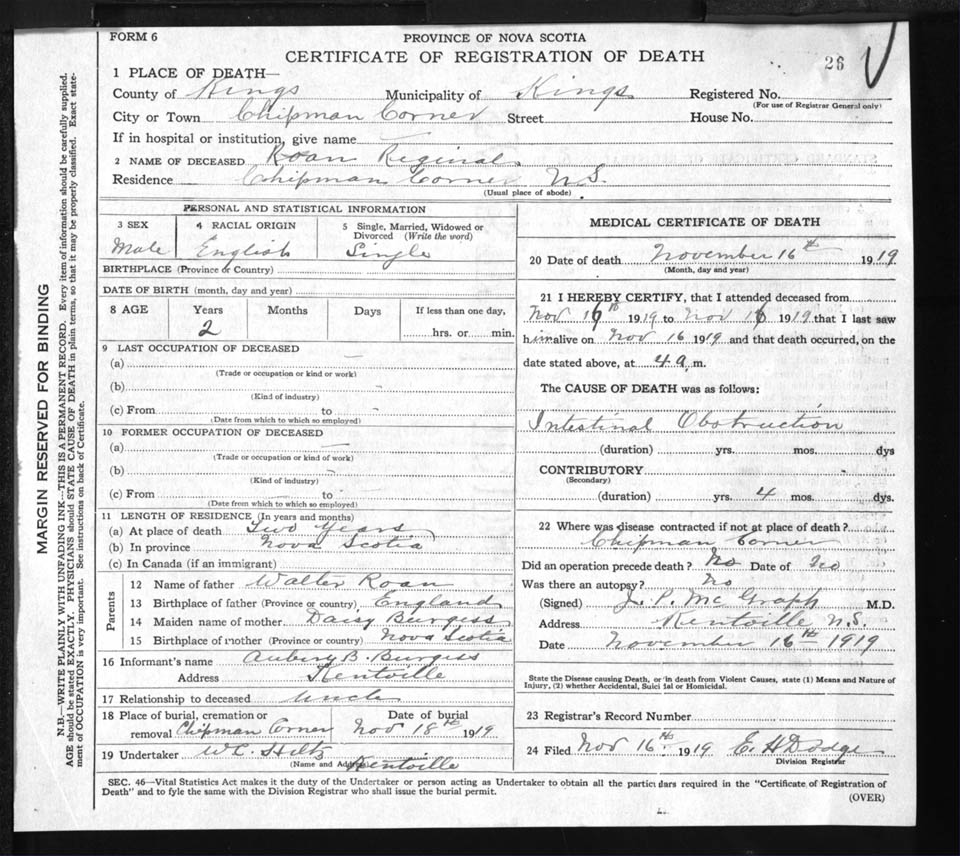 FORM 6
PROVINCE OF NOVA SCOTIA
CERTIFICATE OF REGISTRATION OF DEATH
26
1 PLACE OF DEATH—
County of Kings Municipality of Kings Registered No.
(For use of Registrar General only)
City or Town Chipman Corner Street House No.
If in hospital or institution, give name
2 NAME OF DECEASED Roan Reginal
Residence Chipman Corner N.S.
(Usual place of abode)
PERSONAL AND STATISTICAL INFORMATION
3 SEX
Male
4 RACIAL ORIGIN
English
5 Single, Married, Widowed or Divorced (Write the word)
Single
BIRTHPLACE (Province or Country)
DATE OF BIRTH (month, day and year)
8 AGE Years Months Days If less than one day,
2 hrs. or min.
9 LAST OCCUPATION OF DECEASED
(a)
(Trade or occupation or kind or work)
(b)
(Kind of industry)
(c) From to
(Date from which to which so employed)
10 FORMER OCCUPATION OF DECEASED
(a)
(Trade or occupation or kind of work)
(b)
(Kind of industry)
(c) From to
(Date from which to which so employed)
11 LENGTH OF RESIDENCE (In years and months)
(a) At place of death Two Years
(b) In province Nova Scotia
(c) In Canada (if an immigrant)
Parents
12 Name of father Walter Roan
13 Birthplace of father (Province or country) England
14 Maiden name of mother Daisy Burgess
15 Birthplace of mother (Province or country) Nova Scotia
16 Informant's name Aubury B. Burgess
Address Kentville
17 Relationship to deceased Uncle
18 Place of burial, cremation or removal Chipman Corner
Date of burial
Nov 18th 1919
19 Undertaker W.C. Hiltz
(Name and Address) Kentville
MEDICAL CERTIFICATE OF DEATH
20 Date of death November 16th 1919
(Month, day and year)
21 I HEREBY CERTIFY, that I attended deceased from
Nov 16th 1919 to Nov 16 1919 that I last saw
him alive on Nov 16 1919 and that death occurred, on the
date stated above, at 4 a. m.
The CAUSE OF DEATH was as follows:
Intestinal Obstruction
(duration) yrs. mos. dys
CONTRIBUTORY
(Secondary)
(duration) yrs. 4 mos. dys.
22 Where was disease contracted if not at place of death?
Chipman Corner
Did an operation precede death? No Date of No
Was there an autopsy? No
(Signed) J. P. McGrath M.D.
Address Kentville N.S.
Date November 16th 1919
State the Disease causing Death, or in death from Violent Causes, state (1) Means and Nature of
Injury, (2) whether Accidental, Suicidal or Homicidal.
23 Registrar's Record Number
24 Filed Nov 16th 1919 E. H Dodge
Division Registrar
SEC. 46—Vital Statistics Act makes it the duty of the Undertaker or person acting as Undertaker to obtain all the particulars required in the "Certificate of Registration of
Death" and to fyle the same with the Division Registrar who shall issue the burial permit.
(OVER)
MARGIN RESERVED FOR BINDING
N.B.—WRITE PLAINLY WITH UNFADING INK—THIS IS A PERMANENT RECORD. Every item of information should be carefully supplied.
AGE should be stated EXACTLY. PHYSICIANS should STATE CAUSE OF DEATH in plain terms, so that it may be properly classified. Exact state-
ment of OCCUPATION is very important. See instructions on back of Certificate.